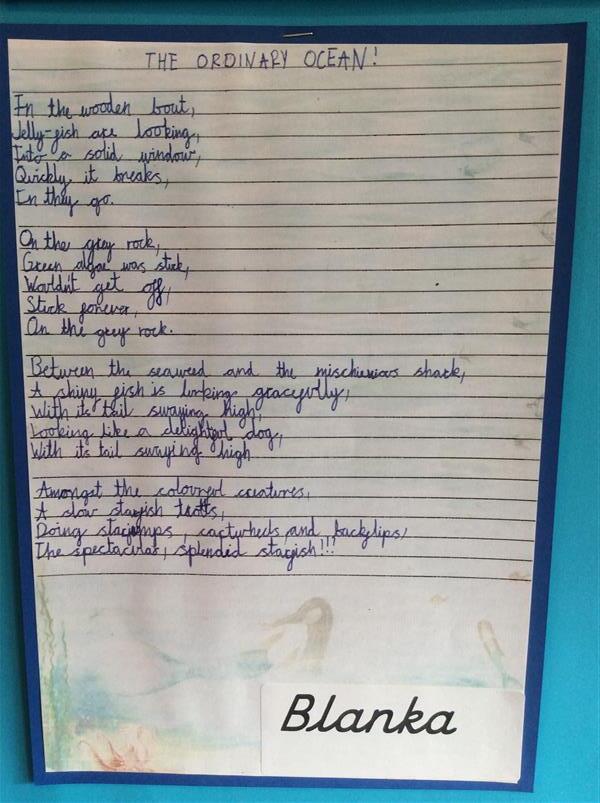 THE ORDINARY OCEAN!
In the wooden bout,
Jelly-fish are looking,
Into a solid window,
Quickly it breaks,
In they go.
On the grey rock,
Green algae was stuck,
Wouldn't get off,
Stuck forever,
On the grey rock.
Between the seaweed and the mischievious shark,
A shiny fish is lurking gracefully,
With its tail swaying high,
Looking like a delightful dog,
With its tail swaying high
Amongst the coloured creatures,
A slow starfish trotts,
Doing starjumps, cartwheels and backflips,
The spectacular, splended starfish!!!
Blanka